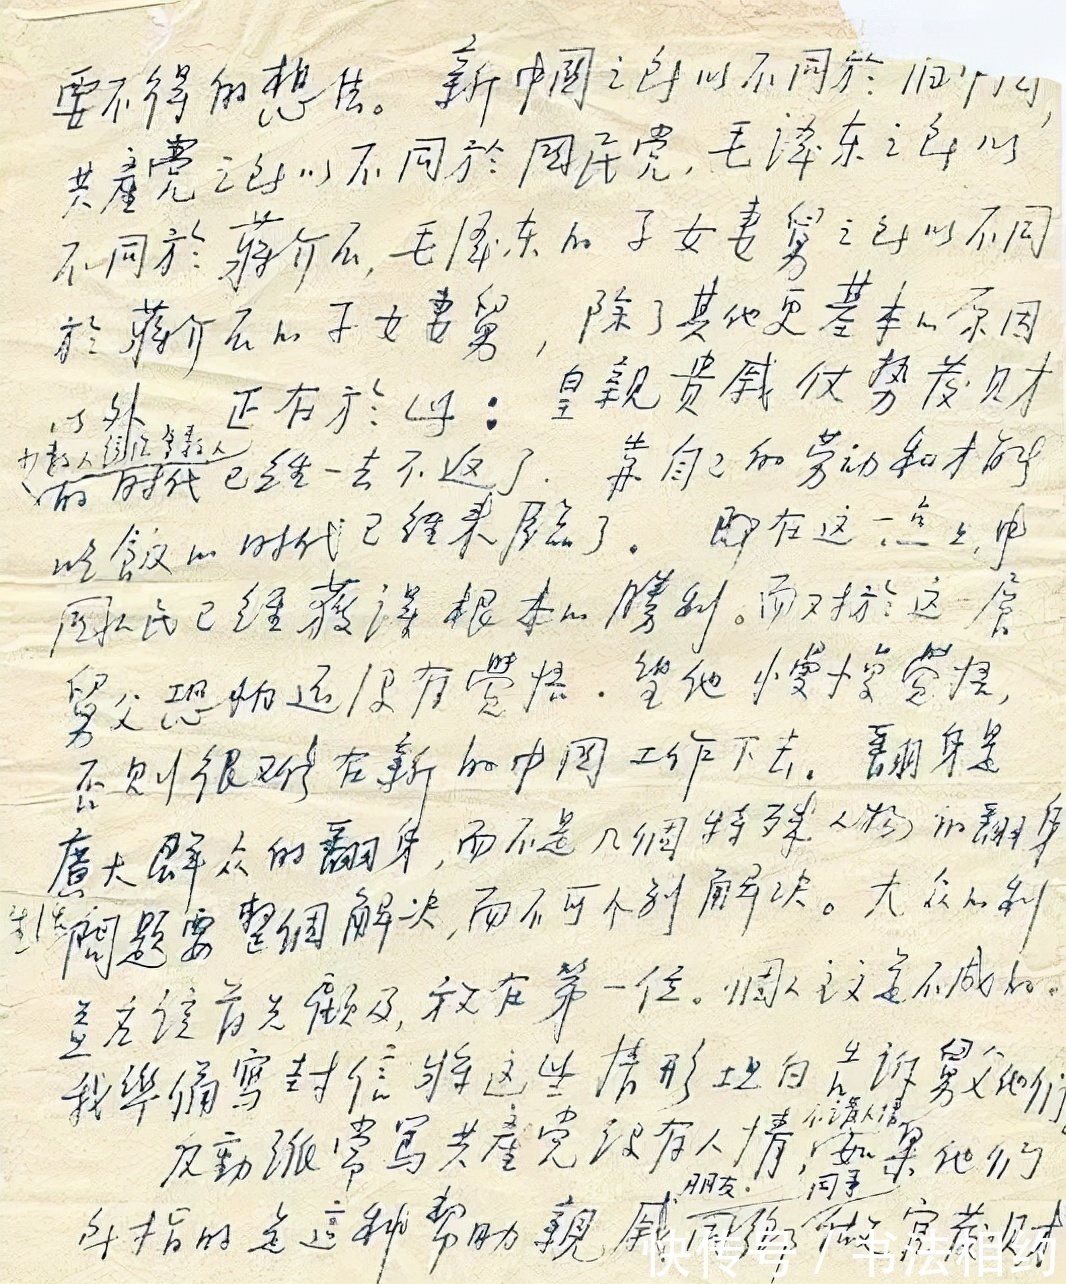 要不得的想法。新中國之所以不同於旧中国,
共產党之所以不同於國民党,毛泽东之所以
不同於蒋介石,毛泽东的子女妻舅之所以不同
於蒋介石的子女妻舅,除了其他更基本的原因
以外 正在於此:皇親貴戚仗势發财
少数人统治多数人
的时代已經一去不返了.靠自己的劳动和才能
吃飯的时代已經来臨了。即在这一点上,中
國人民已經獲得根本的勝利。而对於这一层
舅父恐怕还没有覺悟.望他慢慢覺悟,
否则很难在新的中國工作下去。翻身是
廣大群众的翻身,而不是几個特殊人物的翻身
生活問題要整個解决,而不可个别解决。大众的利
益应該首先顧及,放在第一位。個人主义是不成的。
我準備寫封信将这些情形坦白告訴舅父他们
反動派常罵共產党没有人情,不講人情,如果他们
朋友.同事
所指的是這种帮助親戚同鄉做官發财
快传号/书法相约